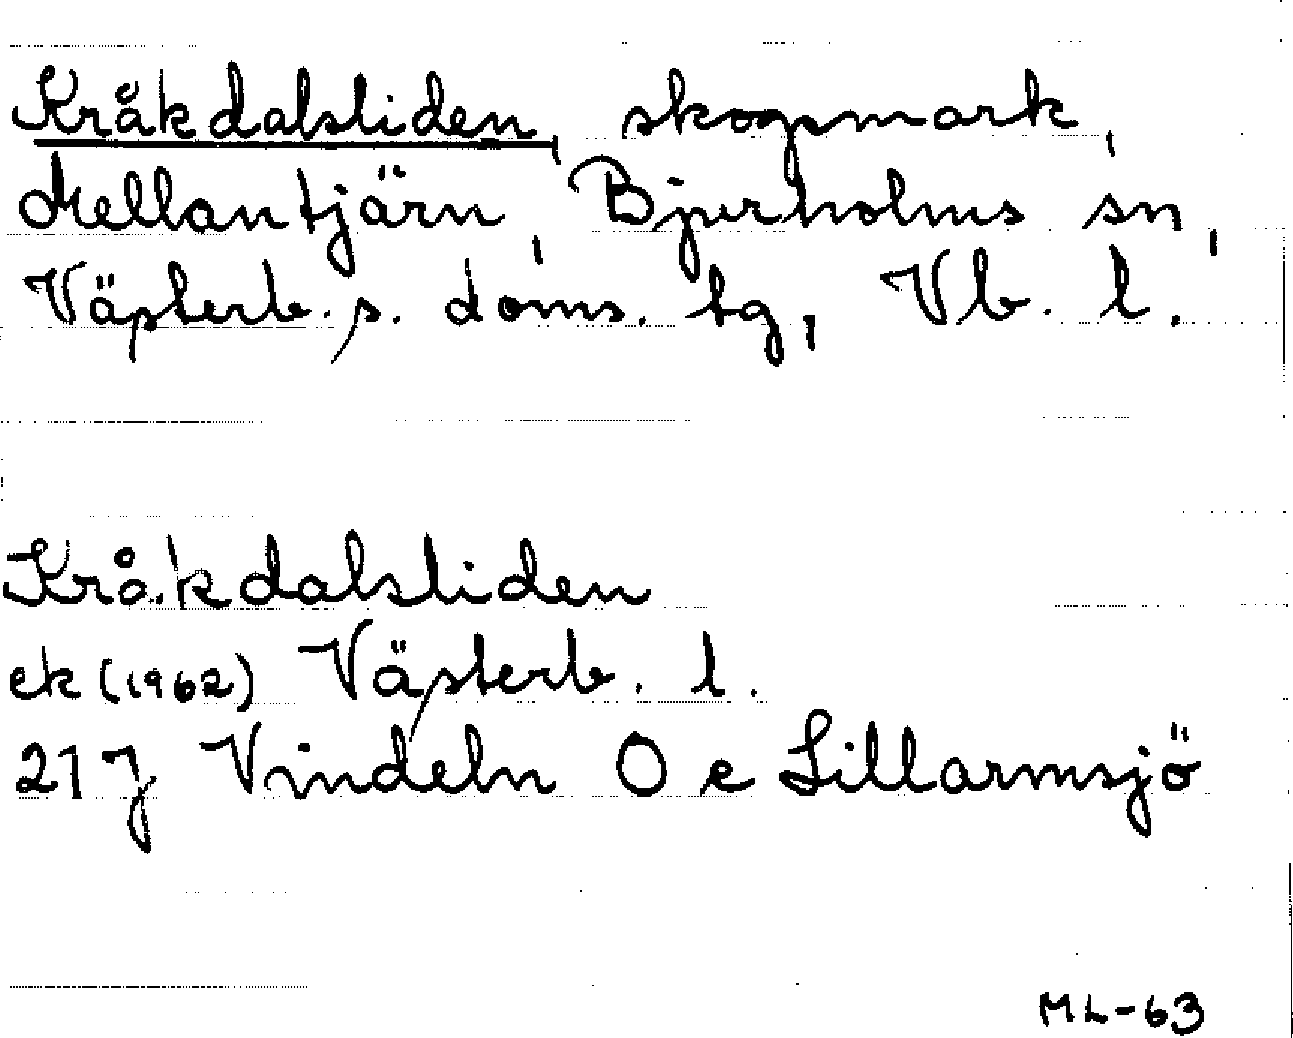 Kråkdalsliden, skogsmark,
Mellantjärn, Bjurholms sn,
Västerb. s. doms. tg, Vb. l.
Kråkdalsliden
ek (1962) Västerb. l.
21 J Vindeln 0 e Lillarmsjö
ML-63